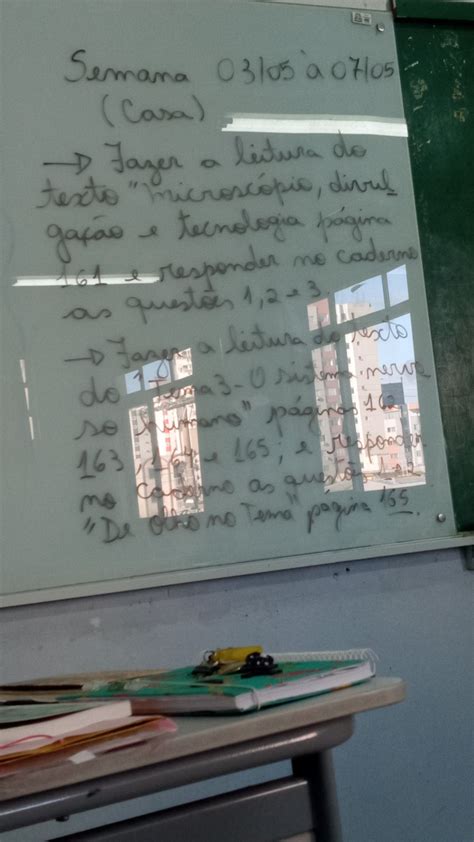 Semana 03/05 à 07/05
(Casa)
→ Fazer a leitura do
texto "Microscópio, divul-
gação e tecnologia página
161 e responder no caderno
as questões 1, 2 e 3
→ Fazer a leitura do texto
do "Tema 3 - O sistema nervo
so humano" páginas
163, 164 e 165; e responder
no caderno as questões
"De olho no Tema" página